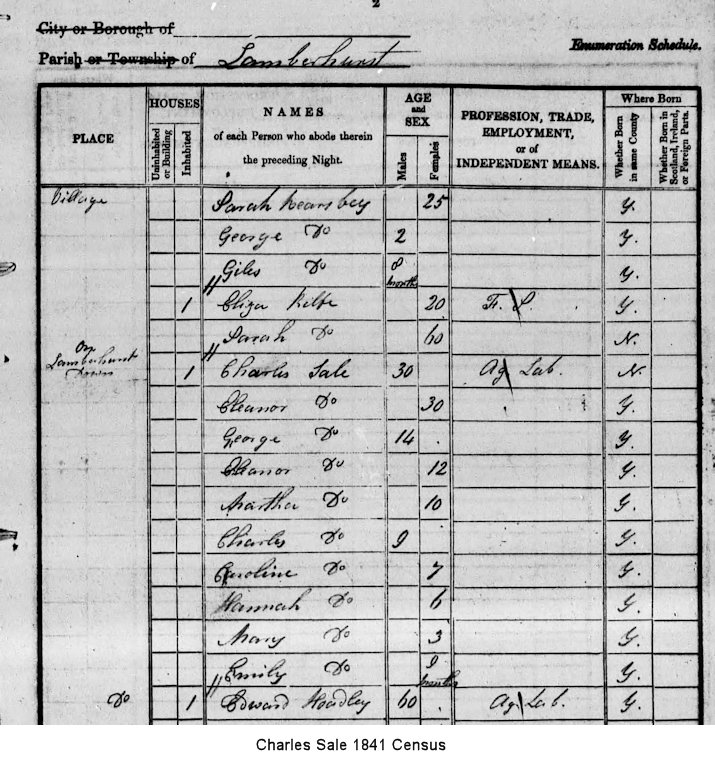 2
City or Borough of
Parish or Township of Lamberhurst
Enumeration Schedule.
PLACE
HOUSES
Uninhabited or Building
Inhabited
NAMES
of each Person who abode therein
the preceding Night.
AGE
and
SEX
Males
Females
PROFESSION, TRADE,
EMPLOYMENT,
or of
INDEPENDENT MEANS.
Where Born
Whether Born in same County
Whether Born in Scotland, Ireland, or Foreign Parts.
Village Sarah 25 Y.
George Do 2 Y.
Giles Do months Y.
1 Eliza 20 F. S. Y.
Sarah Do 60 N.
On Lamberhurst Down 1 Charles Sale 30 Ag Lab. N.
Eleanor Do 30 Y.
George Do 14 Y.
Eleanor Do 12 Y.
Martha Do 10 Y.
Charles Do 9 Y.
Caroline Do 7 Y.
Hannah Do 6 Y.
Mary Do 3 Y.
Emily Do months Y.
Do 1 Edward Hoadley 60 Ag Lab. Y.
Charles Sale 1841 Census